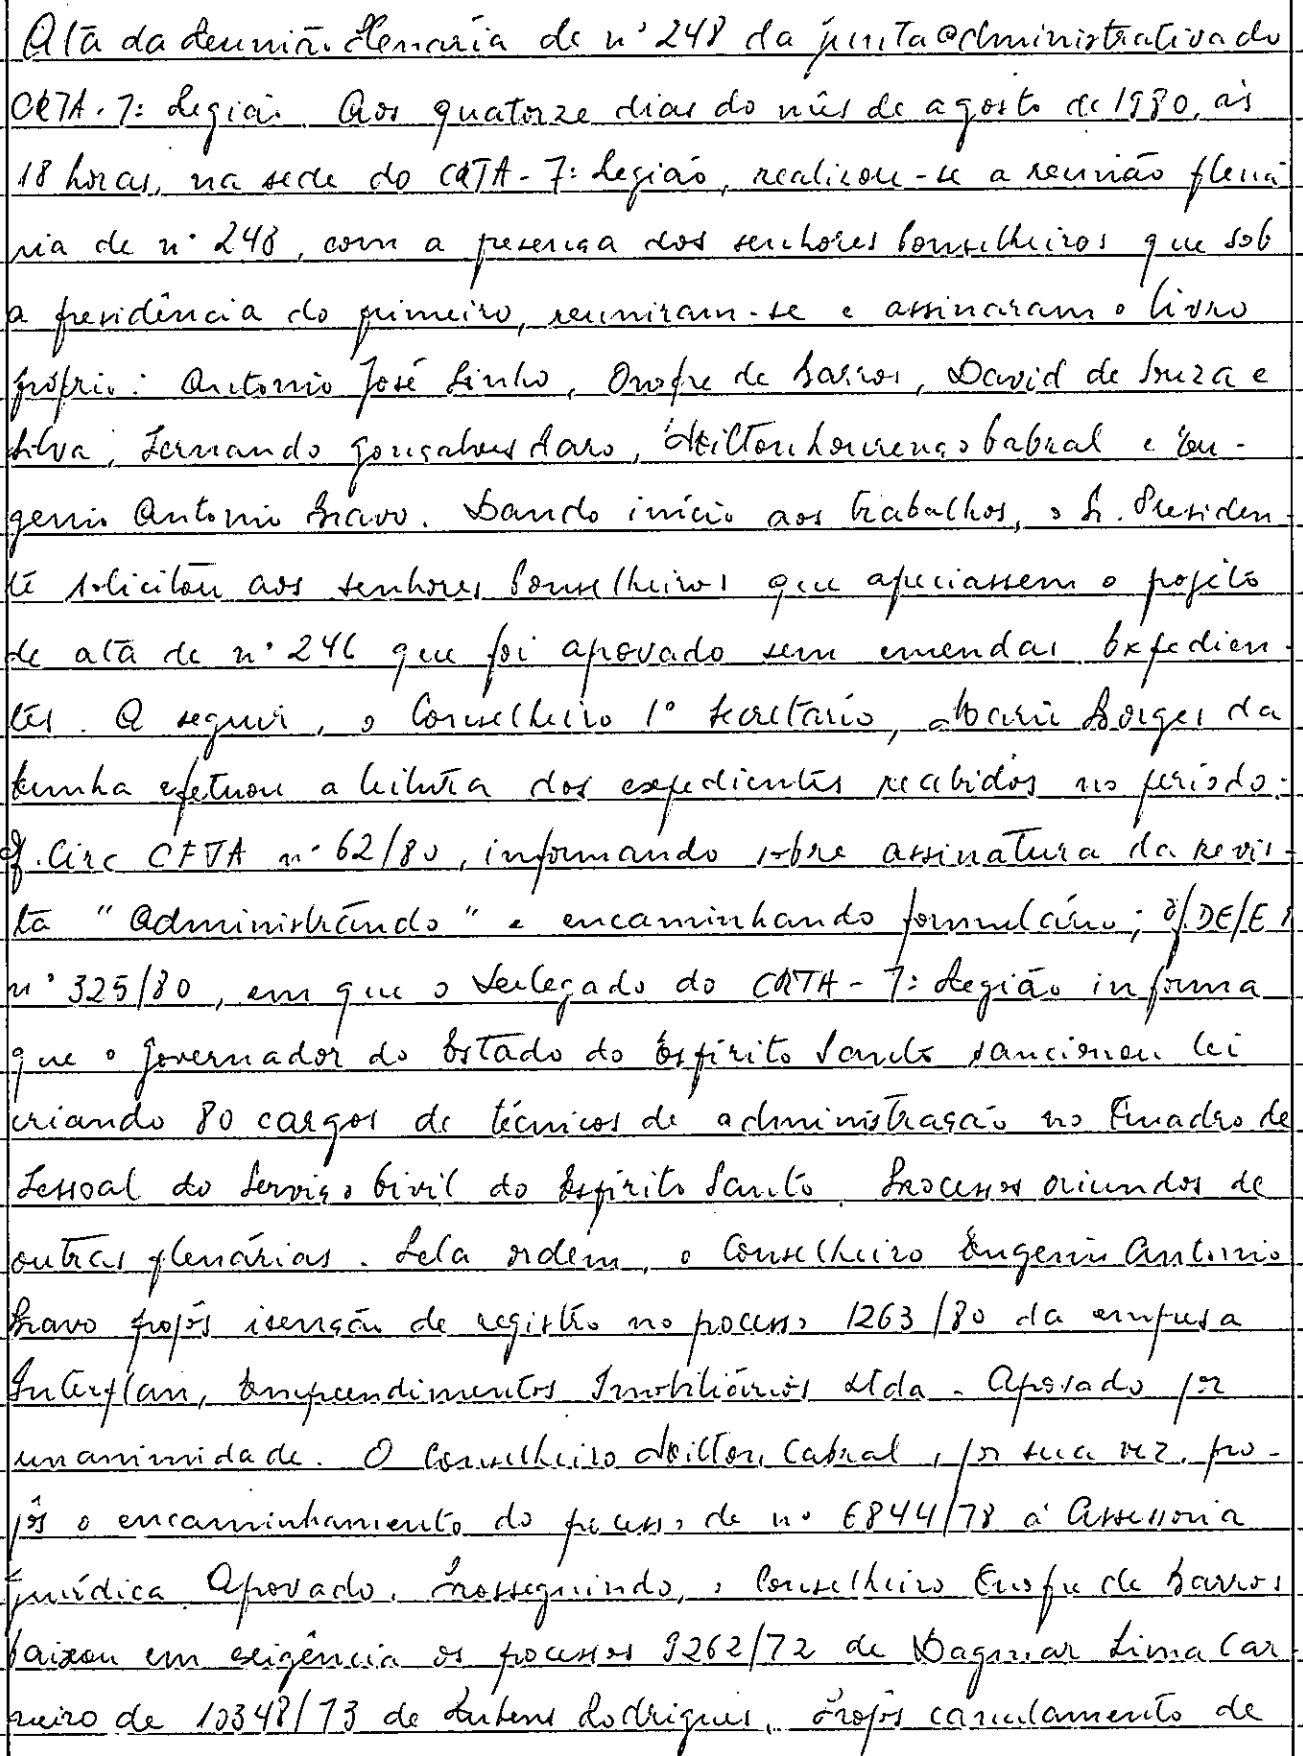 Ata da Reunião Plenária de nº 248 da junta Administrativa do
CRTA-7ª Região. Aos quatorze dias do mês de agosto de 1980, às
18 horas, na sede do CRTA-7ª Região, realizou-se a reunião plená
ria de nº 248, com a presença dos senhores Conselheiros que sob
a presidência do primeiro, reuniram-se e assinaram o livro
próprio: Antonio José Pinho, Onofre de Barros, David de Souza e
Silva, Fernando Gonçalves Haro, Hilton Lourenço Cabral e Eu-
genio Antonio Bravo. Dando início aos trabalhos, o Sr. Presiden-
te solicitou aos senhores Conselheiros que apreciassem o projeto
de ata de nº 246 que foi aprovado sem emendas. Expedien-
tes. A seguir, o Conselheiro 1º Secretário, Mario Borges da
Cunha efetuou a leitura dos expedientes recebidos no período:
Of. Circ CFTA nº 62/80, informando sobre assinatura da revis-
ta "Administrando" e encaminhando formulário; of. DE/E
nº 325/80, em que o Delegado do CRTA-7ª Região informa
que o Governador do Estado do Espírito Santo sancionou lei
criando 80 cargos de técnicos de administração no Quadro de
Pessoal do Serviço Civil do Espírito Santo. Processos oriundos de
outras plenárias. Pela ordem, o Conselheiro Eugenio Antonio
Bravo propôs isenção de registro no processo 1263/80 da empresa
Interplan, Empreendimentos Imobiliários Ltda. Aprovado por
unanimidade. O Conselheiro Hilton Cabral, por sua vez, pro-
pôs o encaminhamento do processo de nº 6844/78 à Assessoria
jurídica. Aprovado. Prosseguindo, o Conselheiro Onofre de Barros
baixou em exigência os processos 9262/72 de Dagmar Lima Car-
neiro de 10348/73 de Rubens Rodrigues. Propôs cancelamento de